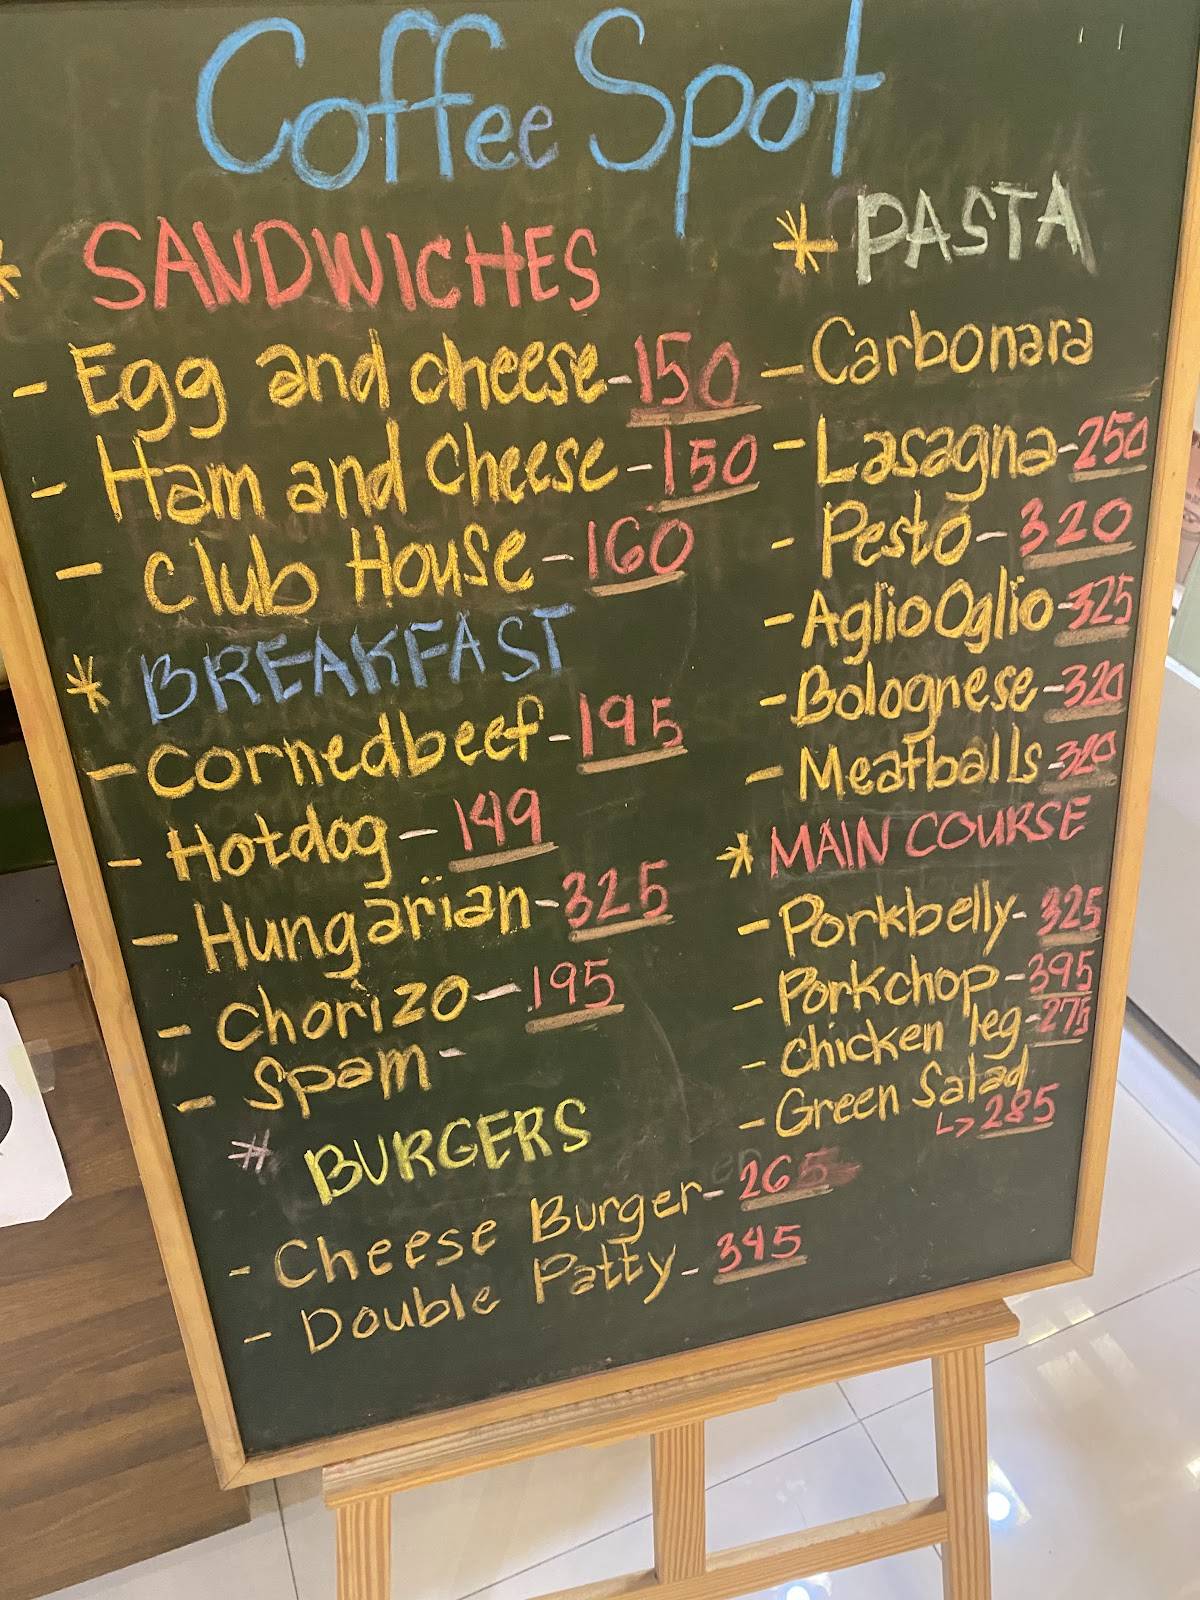 Coffee Spot
* SANDWICHES
- Egg and cheese-150
- Ham and cheese-150
- Club House-160
* BREAKFAST
- cornedbeef-195
- Hotdog-149
- Hungarian-325
- Chorizo-195
- Spam-
# BURGERS
- Cheese Burger-265
- Double Patty-345
* PASTA
- Carbonara
- Lasagna-250
- Pesto-320
- Aglio Oglio-325
- Bolognese-320
- Meatballs-320
* MAIN COURSE
- Porkbelly-325
- Porkchop-395
- chicken leg-275
- Green Salad
↳ 285